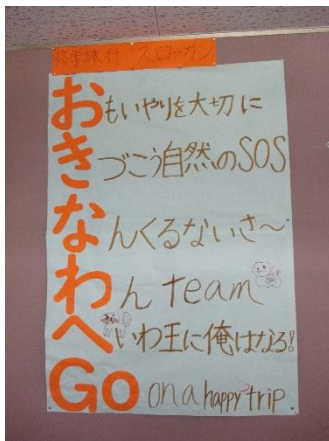 修学旅行 スローガン
おもいやりを大切に
きづこう自然のSOS
なんくるないさ～
わん team
へいわ王に俺はなる!
Go on a happy trip